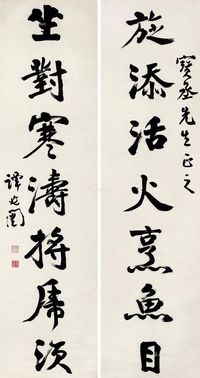 寶丞先生正之
旋添活火烹魚目
坐對寒濤捋虎須
譚延闓